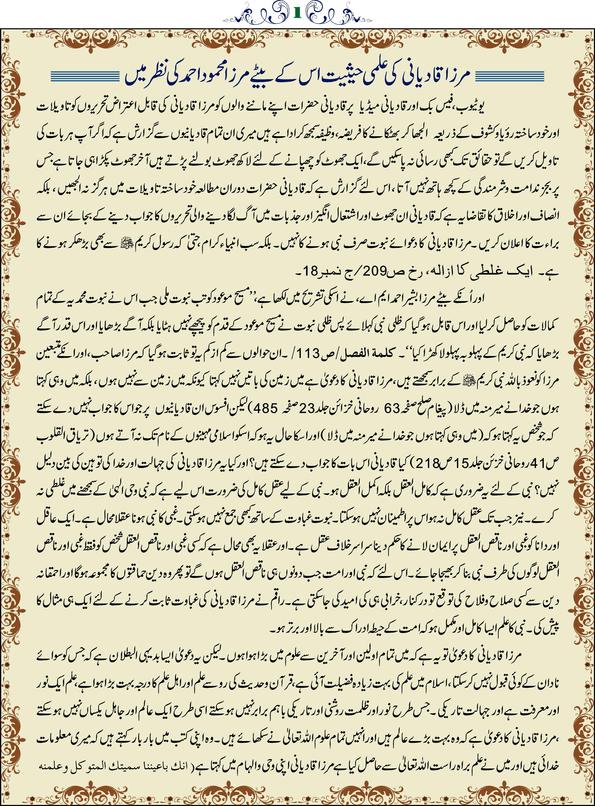 1
مرزا قادیانی کی علمی حیثیت اس کے بیٹے مرزا محمود احمد کی نظر میں
یوٹیوب، فیس بک اور قادیانی میڈیا پر قادیانی حضرات اپنے ماننے والوں کو مرزا قادیانی کی قابل اعتراض تحریروں کو تاویلات
اور خود ساختہ رؤیا و کشوف کے ذریعہ الجھا کر بھٹکانے کا فریضہ، وظیفہ سمجھ کر ادا ہے ہیں میری ان تمام قادیانیوں سے گزارش ہے کہ اگر آپ ہر بات کی
تاویل کریں گے تو حقائق تک کبھی رسائی نہ پا سکیں گے، ایک جھوٹ کو چھپانے کے لئے لاکھ جھوٹ بولنے پڑتے ہیں آخر جھوٹ پکڑا ہی جاتا ہے جس
پر بجز ندامت و شرمندگی کے کچھ ہاتھ نہیں آتا، اس لئے گزارش ہے کہ قادیانی حضرات دوران مطالعہ خود ساختہ تاویلات میں ہرگز نہ الجھیں، بلکہ
انصاف اور اخلاق کا تقاضا یہ ہے کہ قادیانی ان جھوٹ اور اشتعال انگیز اور جذبات میں آگ لگا دینے والی تحریروں کا جواب دینے کے بجائے ان سے
براءت کا اعلان کریں۔ مرزا قادیانی کا دعوائے نبوت صرف نبی ہونے کا نہیں۔ بلکہ سب انبیاء کرام حتیٰ کہ رسول کریم ﷺ سے بھی بڑھ کر ہونے کا
ہے۔ ایک غلطی کا ازالہ، رخ ص209/ج نمبر18۔
اور اُنکے بیٹے مرزا بشیر احمد ایم اے، نے اسکی تشریح میں لکھا ہے، ”مسیح موعود کو تب نبوت ملی جب اس نے نبوت محمدیہ کے تمام
کمالات کو حاصل کر لیا اور اس قابل ہو گیا کہ ظلی نبی کہلائے پس ظلی نبوت نے مسیح موعود کے قدم کو پیچھے نہیں ہٹایا بلکہ آگے بڑھایا اور اس قدر آگے
بڑھایا کہ نبی کریم کے پہلو بہ پہلو لا کھڑا کیا“۔ کلمة الفصل/ص 113/۔ ان حوالوں سے کم از کم یہ تو ثابت ہو گیا کہ مرزا صاحب، اور انکے متبعین
مرزا کو نعوذ باللہ نبی کریم ﷺ کے برابر سمجھتے ہیں، مرزا قادیانی کا دعویٰ ہے میں زمین کی باتیں نہیں کہتا کیونکہ میں زمین سے نہیں ہوں، بلکہ میں وہی کہتا
ہوں جو خدا نے میرے منہ میں ڈالا (پیغام صلح صفحہ 63 روحانی خزائن جلد 23 صفحہ 485) لیکن افسوس ان قادیانیوں پر جو اس کا جواب نہیں دے سکتے
کہ جو شخص یہ کہتا ہو کہ (میں وہی کہتا ہوں جو خدا نے میرے منہ میں ڈالا) اور اسکا حال یہ ہو کہ اسکو اسلامی مہینوں کے نام تک نہ آتے ہوں (تریاق القلوب
ص 41 روحانی خزئن جلد 15 ص 218) کیا قادیانی اس بات کا جواب دے سکتے ہیں؟ اور کیا یہ مرزا قادیانی کی جہالت اور خدا کی توہین کی بین دلیل
نہیں؟ نبی کے لئے یہ ضروری ہے کہ کامل العقل بلکہ اکمل العقل ہو۔ نبی کے لیے عقل کامل کی ضرورت اس لیے ہے کہ نبی وحی الہیٰ کے سمجھنے میں غلطی نہ
کرے۔ نیز جب تک عقل کامل نہ ہو اس پر اطمینان نہیں ہو سکتا۔ نبوت غباوت کے ساتھ بھی جمع نہیں ہو سکتی۔ غبی کا نبی ہونا عقلا محال ہے۔ ایک عاقل
اور دانا کو غبی اور ناقص العقل پر ایمان لانے کا حکم دینا سراسر خلاف عقل ہے۔ اور عقلا یہ بھی محال ہے کہ کسی غبی اور ناقص العقل شخص کو فقط غبی اور ناقص
العقل لوگوں کی طرف نبی بنا کر بھیجا جائے۔ اس لئے کہ نبی اور امت جب دونوں ہی ناقص العقل ہوں گے تو پھر وہ دین حماقتوں کا مجموعہ ہو گا اور احمقانہ
دین سے کسی صلاح و فلاح کی توقع تو درکنار، خرابی ہی کی امید کی جا سکتی ہے۔ راقم نے مرزا قادیانی کی غباوت ثابت کرنے کے لئے ایک ہی مثال کا
پیش کی۔ نبی کا علم ایسا کامل اور مکمل ہو کہ امت کے حیطہ ادراک سے بالا اور برتر ہو۔
مرزا قادیانی کا دعویٰ تو یہ ہے کہ میں تمام اولین اور آخرین سے علوم میں بڑا ہوا ہوں۔ لیکن یہ دعویٰ ایسا بدیہی البطلان ہے کہ جس کو سوائے
نادان کے کوئی قبول نہیں کر سکتا، اسلام میں علم کی بہت زیادہ فضیلت آئی ہے، قرآن و حدیث کی رو سے علم اور اہل علم کا درجہ بہت بڑا ہوا ہے، علم ایک نور
اور معرفت ہے اور جہالت تاریکی۔ جس طرح نور اور ظلمت روشنی اور تاریکی باہم برابر نہیں ہو سکتے اسی طرح ایک عالم اور جاہل یکساں نہیں ہو سکتے
،مرزا قادیانی کا دعویٰ ہے کہ وہ بہت بڑے عالم ہیں اور انہیں تمام علوم اللہ تعالیٰ نے سکھائے ہیں۔ وہ اپنی کتب میں بار بار کہتے ہیں کہ میری معلومات
خدائی ہیں اور میں نے علم براہ راست اللہ تعالیٰ سے حاصل کیا ہے مرزا قادیانی اپنی وحی والہام میں کہتا ہے (انك باعيننا سميتك المتوكل وعلمنه